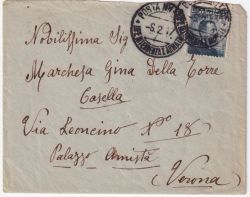 POSTA MI
-6.2.17
Nobilissima Sig
Marchesa Gina della Torre
Casella
Via Leoncino N° 18
Palazzo
(Verona)